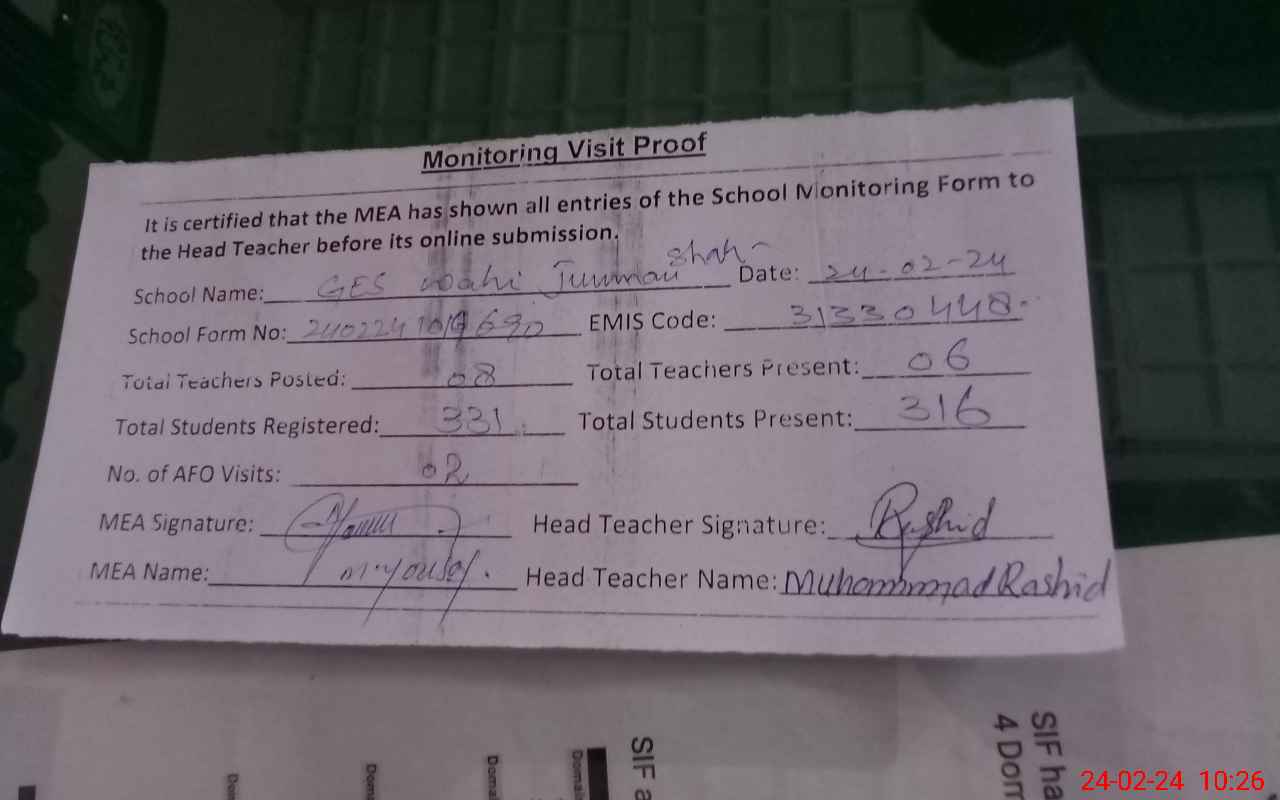 Monitoring Visit Proof
It is certified that the MEA has shown all entries of the School Monitoring Form to
the Head Teacher before its online submission.
School Name: GES wahi Jumman Shah Date: 24-02-24
School Form No: EMIS Code: 31330448
Total Teachers Posted: 08 Total Teachers Present: 06
Total Students Registered: 331 Total Students Present: 316
No. of AFO Visits: 02
MEA Signature: Head Teacher Signature: Rashid
MEA Name: M. Yousaf. Head Teacher Name: Muhammad Rashid
SIF a
SIF ha
4 Dom
Doi
Dom
Domai
Domain
24-02-24 10:26